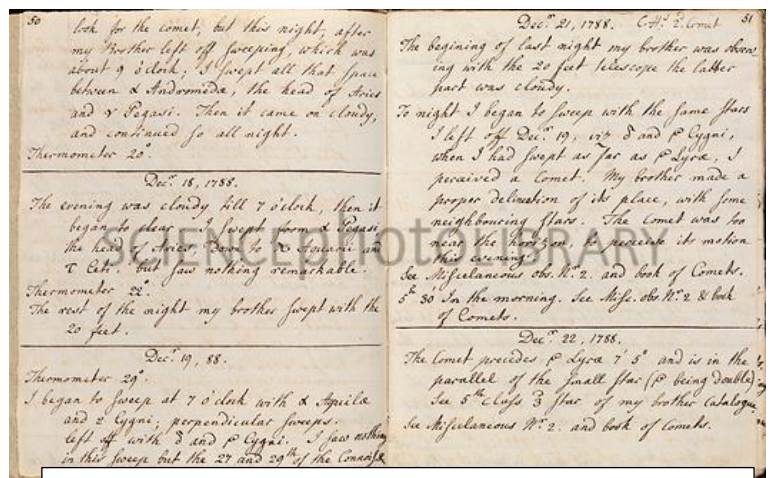 50
look for the comet, but this night, after
my Brother left off sweeping, which was
about 9 o'clock; I swept all that space
between α Andromeda, the head of Aries
and γ Pegasi. Then it came on cloudy,
and continued so all night.
Thermometer 20°.
Decr. 18, 1788.
The evening was cloudy till 7 o'clock, then it
began to clear. I swept from α Pegasi
the head of Aries down to Antani and
τ Ceti. but saw nothing remarkable.
Thermometer 22°.
The rest of the night my brother swept with the
20 feet.
Decr. 19, 88.
Thermometer 29°.
I began to sweep at 7 o'clock with α Aquilæ
and 2 Cygni; perpendicular sweeps.
left off with δ and ρ Cygni. I saw nothing
in this sweep but the 27 and 29th of the
Decr. 21, 1788. C.H.s 2. Comet
51
The begining of last night my brother was observ-
ing with the 20 feet telescope the latter
part was cloudy.
To night I began to sweep with the same stars
I left off Decr. 19, viz δ and ρ Cygni,
when I had swept as far as β Lyræ, I
perceived a Comet. My brother made a
proper delineation of its place, with some
neighbouring stars. The Comet was too
near the horizon, to perceive its motion
this evening.
See Miscelaneous obs. Nr. 2. and book of Comets.
5h 30 In the morning. See Misc. obs. Nr. 2 & book
of Comets.
Decr. 22, 1788.
The Comet precedes β Lyræ 7' 5" and is in the
parallel of the small star (β being double)
See 5th Class 3 star of my brother Catalogue
See Miscelaneous Nr. 2. and book of Comets.
SCIENCEphotoLIBRARY